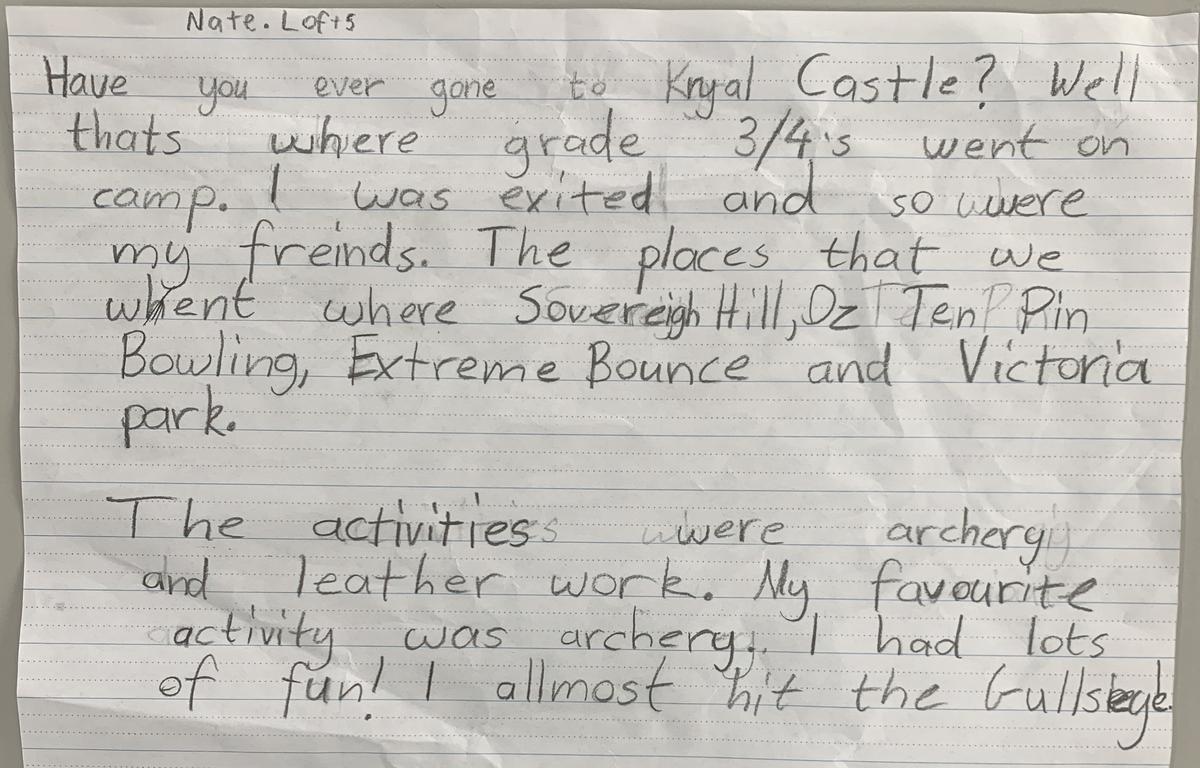 Nate. Lofts
Have you ever gone to Kryal Castle? Well
thats where grade 3/4's went on
camp. I was exited and so were
my freinds. The places that we
whent where Sovereigh Hill, Oz Ten Pin
Bowling, Extreme Bounce and Victoria
park.
The activities were archery
and leather work. My favourite
activity was archery. I had lots
of fun! I allmost hit the bullseye.